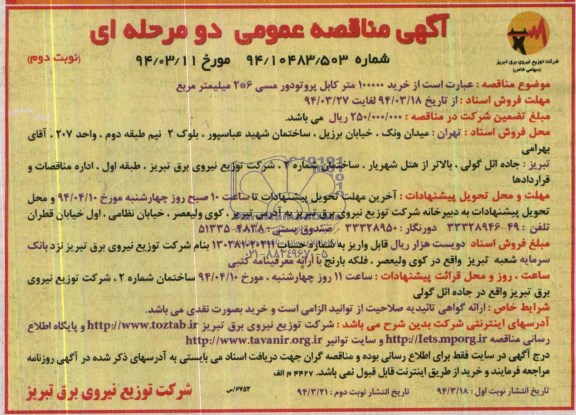 آگهی مناقصه عمومی دو مرحله ای
شرکت توزیع نیروی برق تبریز
(سهامی خاص)
شماره ۹۴/۱۰۴۸۳/۵۰۳ مورخ ۹۴/۰۳/۱۱ (نوبت دوم)
موضوع مناقصه : عبارت است از خرید ۱۰۰۰۰۰ متر کابل پروتودور مسی ۶*۲ میلیمتر مربع
مهلت فروش اسناد : از تاریخ ۹۴/۰۳/۱۸ لغایت ۹۴/۰۳/۲۷
مبلغ تضمین شرکت در مناقصه : ۲۵۰/۰۰۰/۰۰۰ ریال می باشد.
محل فروش اسناد : تهران : میدان ونک ، خیابان برزیل ، ساختمان شهید عباسپور ، بلوک ۲ نیم طبقه دوم ، واحد ۲۰۷ ، آقای
بهرامی
تبریز : جاده ائل گولی ، بالاتر از هتل شهریار ، ساختمان شماره ۲ ، شرکت توزیع نیروی برق تبریز ، طبقه اول ، اداره مناقصات و
قراردادها
مهلت و محل تحویل پیشنهادات : آخرین مهلت تحویل پیشنهادات تا ساعت ۱۰ صبح روز چهارشنبه مورخ ۹۴/۰۴/۱۰ و محل
تحویل پیشنهادات به دبیرخانه شرکت توزیع نیروی برق تبریز به آدرس تبریز ، کوی ولیعصر ، خیابان نظامی ، اول خیابان قطران
تلفن : ۴۹-۳۳۳۲۸۹۴۶ دورنگار : ۳۳۳۲۸۹۵۰ صندوق پستی : ۴۸۳۸-۵۱۳۳۵
مبلغ فروش اسناد دویست هزار ریال قابل واریز به شماره حساب بنام شرکت توزیع نیروی برق تبریز نزد بانک
سرمایه شعبه تبریز واقع در کوی ولیعصر ، فلکه بارنج با ارایه معرفینامه کتبی
ساعت ، روز و محل قرائت پیشنهادات : ساعت ۱۱ روز چهارشنبه ، مورخ ۹۴/۰۴/۱۰ ساختمان شماره ۲ ، شرکت توزیع نیروی
برق تبریز واقع در جاده ائل گولی
شرایط خاص : ارائه گواهی تائیدیه صلاحیت از توانیر الزامی است و خرید بصورت نقدی می باشد.
آدرسهای اینترنتی شرکت بدین شرح می باشد : شرکت توزیع نیروی برق تبریز http://www.toztab.ir و پایگاه اطلاع
رسانی مناقصه http://Iets.mporg.ir و سایت توانیر http://www.tavanir.org.ir
درج آگهی در سایت فقط برای اطلاع رسانی بوده و مناقصه گران جهت دریافت اسناد می بایستی به آدرسهای ذکر شده در آگهی روزنامه
مراجعه فرمایند و خرید از طریق اینترنت قابل قبول نمی باشد. ۴۴۲۷ م الف
تاریخ انتشار نوبت اول : ۹۴/۳/۱۸ تاریخ انتشار نوبت دوم : ۹۴/۳/۲۱ ۶۷۵۳/س شرکت توزیع نیروی برق تبریز